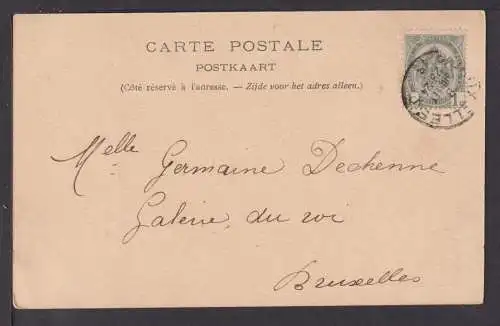 CARTE POSTALE
POSTKAART
(Côté réservé à l'adresse. — Zijde voor het adres alleen.)
Melle Germaine Dechenne
Galerie du roi
Bruxelles